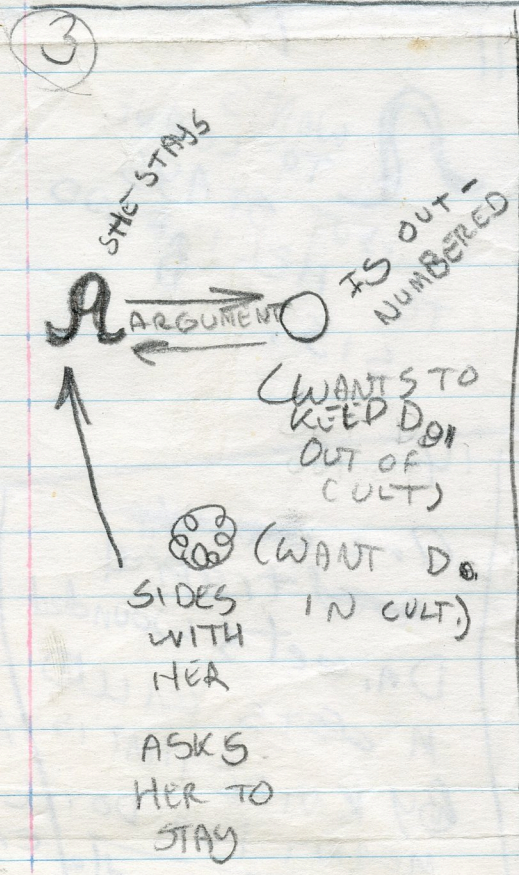 3
SHE STAYS
IS OUT-
NUMBERED
ARGUMENT
(WANTS TO
KEEP D
OUT OF
CULT)
(WANT D.
IN CULT.)
SIDES
WITH
HER
ASKS
HER TO
STAY